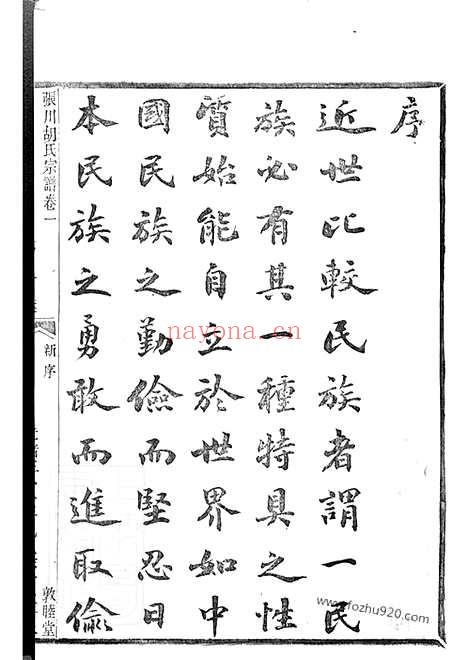 序
近世比較民族者謂一民
族必有其一種特具之性
質始能自立於世界如中
國民族之勤儉而堅忍日
本民族之勇敢而進取儉
張川胡氏宗譜卷一
新序
敦睦堂
nayona.cn
www.fozhu920.com